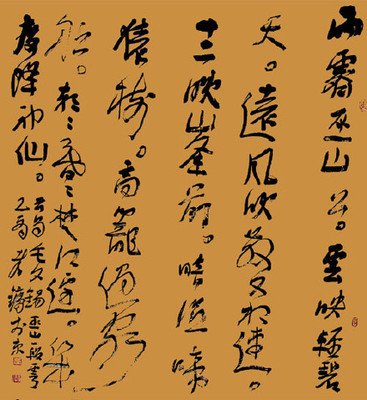 雨霽巫山上。雲映輕碧
天。遠風吹散又相連。
十二晚峯前。暗濕啼
猿樹。高籠過客
船。朝〻暮〻楚江邊。幾
度降神仙。
毛文錫巫山一段雲
於京